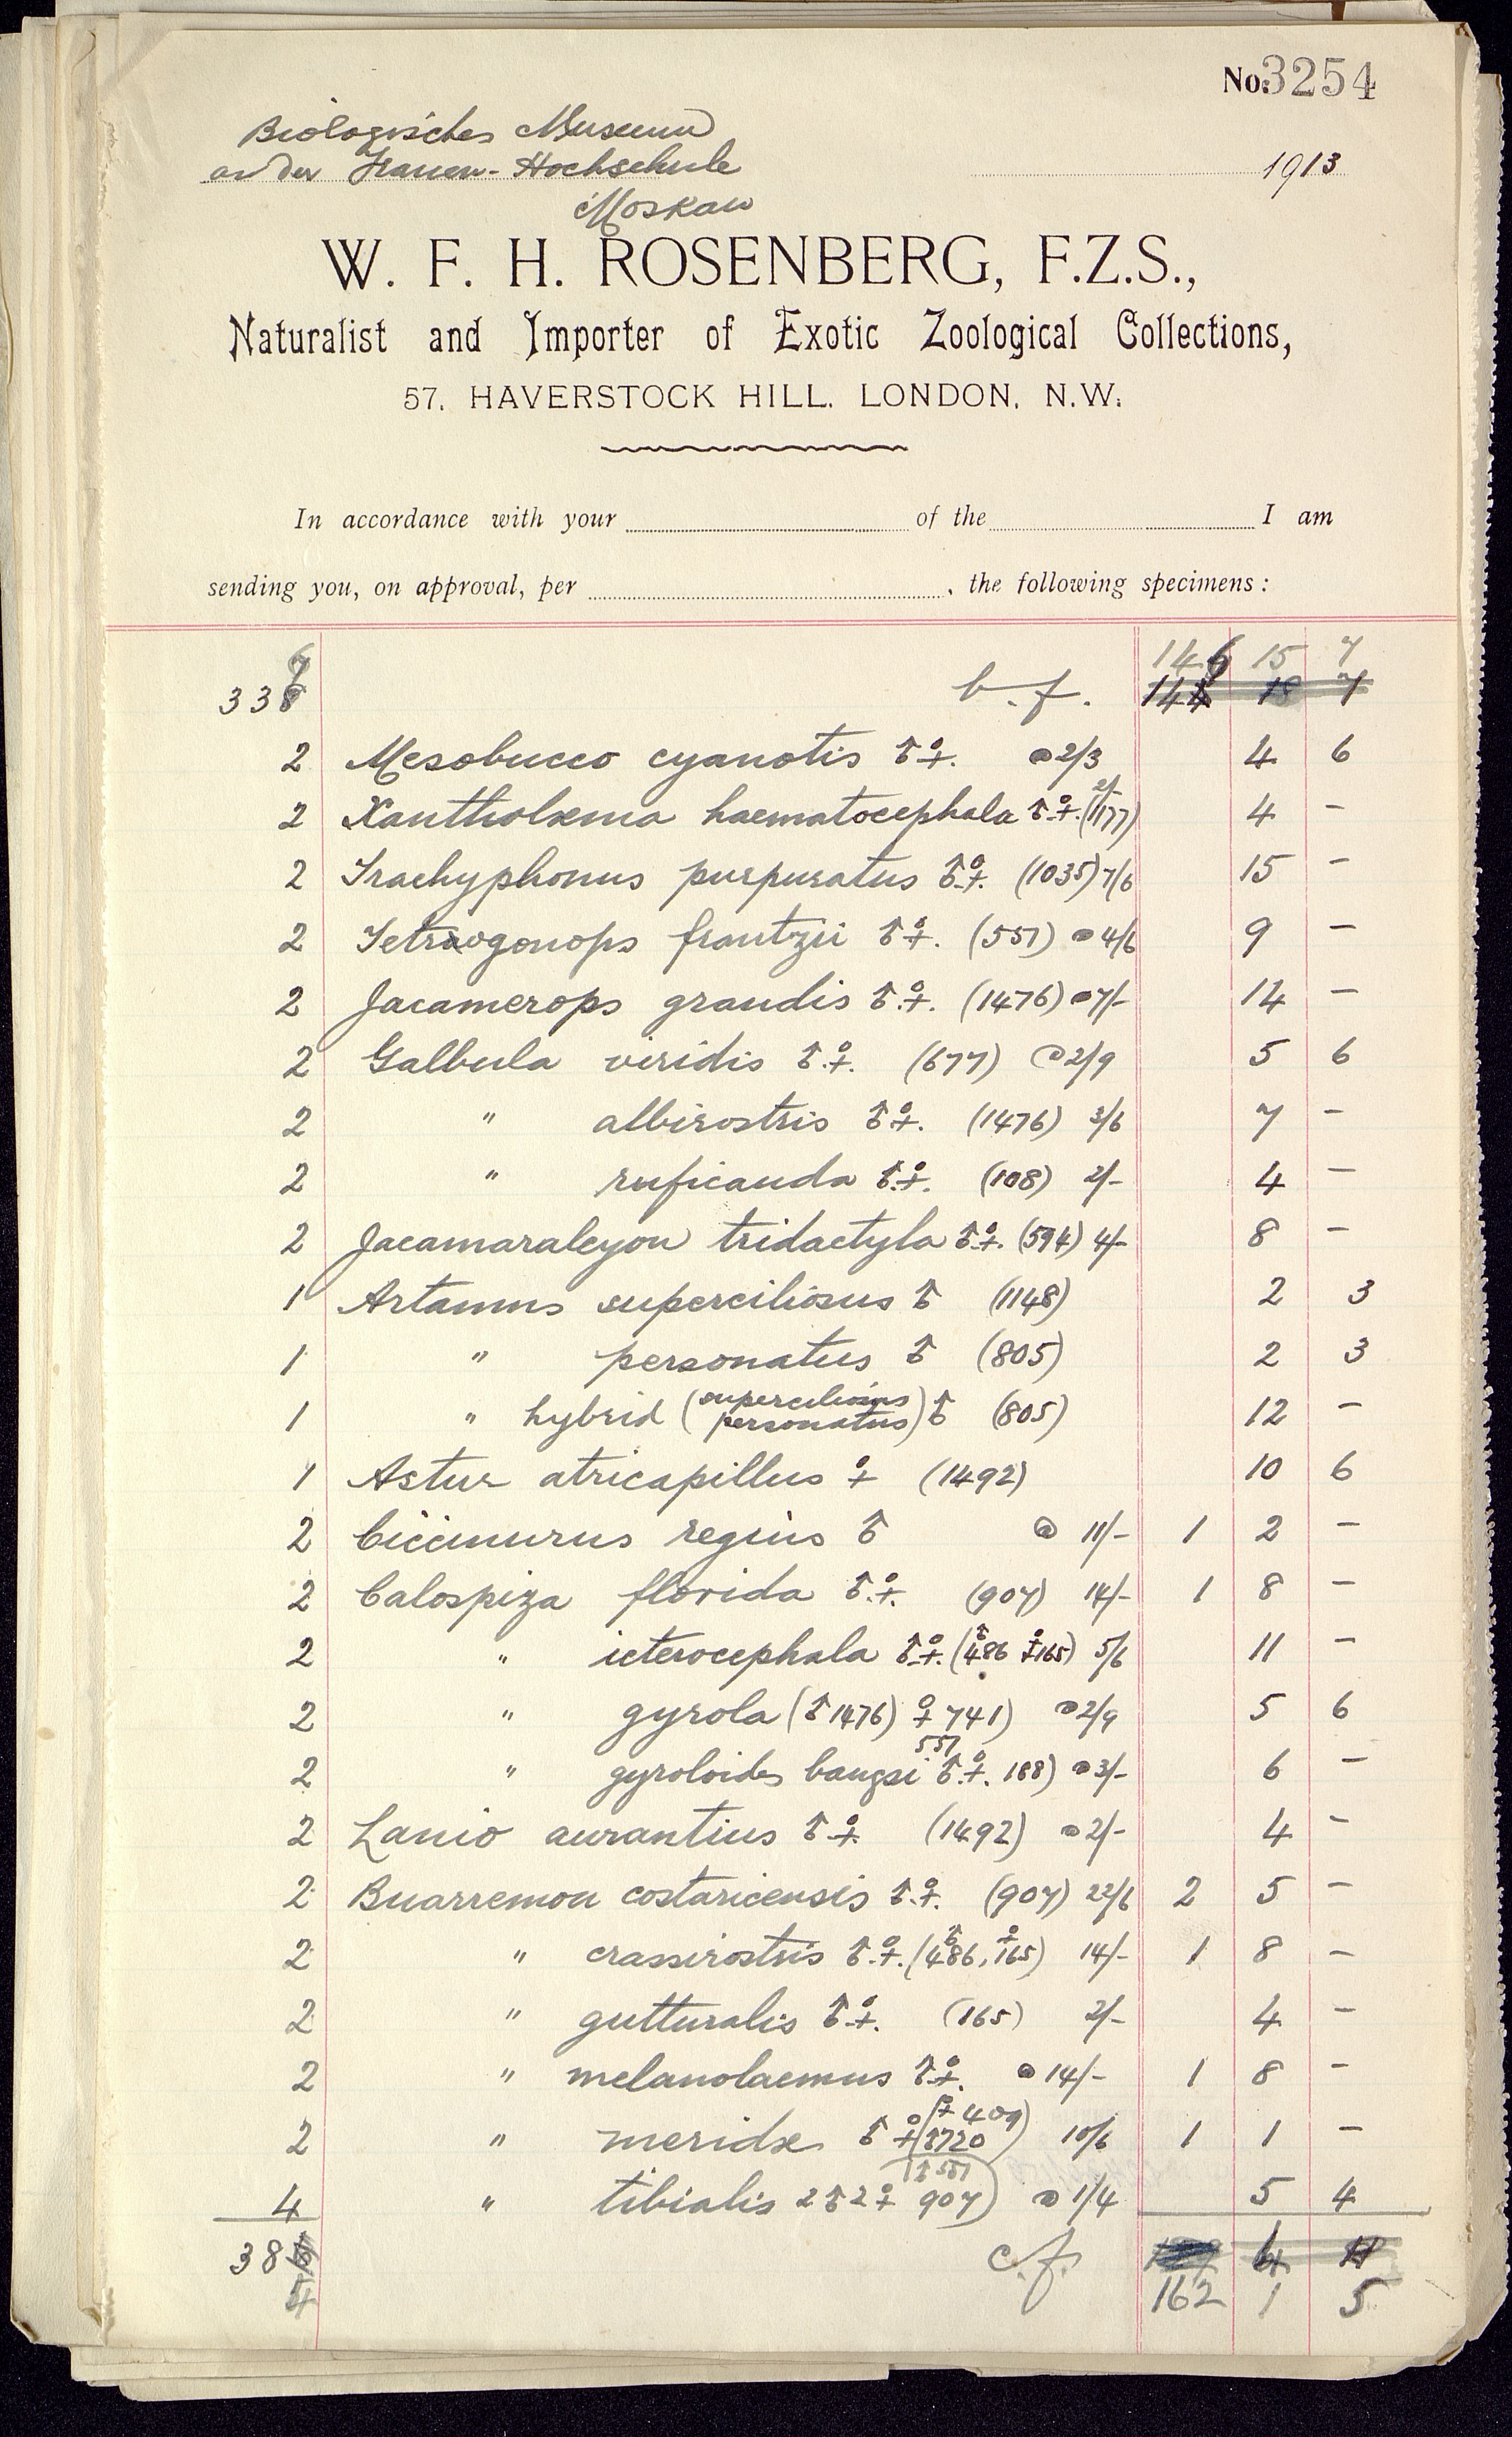 No. 3254
Biologisches Museum
an der Frauen-Hochschule
1913
Moskau
W. F. H. ROSENBERG, F.Z.S.,
Naturalist and Importer of Exotic Zoological Collections,
57, HAVERSTOCK HILL, LONDON, N.W.
In accordance with your of the I am
sending you, on approval, per , the following specimens:
146 15 7
336 b.f.
2 Mesobucco cyanotis ♂♀. @ 2/3 4 6
2 Xantholæma haematocephala ♂♀. (1177) 2/- 4 -
2 Trachyphonus purpuratus ♂♀. (1035) 7/6 15 -
2 Tetragonops frantzii ♂♀. (551) @ 4/6 9 -
2 Jacamerops grandis ♂.♀. (1476) @ 7/- 14 -
2 Galbula viridis ♂.♀. (677) @ 2/9 5 6
2 " albirostris ♂♀. (1476) 3/6 7 -
2 " ruficauda ♂.♀. (108) 2/- 4 -
2 Jacamaralcyon tridactyla ♂.♀. (594) 4/- 8 -
1 Artamus superciliosus ♂ (1148) 2 3
1 " personatus ♂ (805) 2 3
1 " hybrid (superciliosus personatus) ♂ (805) 12 -
1 Astur atricapillus ♀ (1492) 10 6
2 Ciccinurus regius ♂ @ 11/- 1 2 -
2 Calospiza florida ♂.♀. (907) 14/- 1 8 -
2 " icterocephala ♂♀. (♂486 ♀165) 5/6 11 -
2 " gyrola (♂ 1476) ♀ 741) @ 2/9 5 6
2 " gyroloides bangsi ♂.♀. 551 188) @ 3/- 6 -
2 Lanio aurantius ♂♀ (1492) @ 2/- 4 -
2 Buarremon costaricensis ♂.♀. (907) 22/6 2 5 -
2 " crassirostris ♂.♀. (♂486, ♀165) 14/- 1 8 -
2 " gutturalis ♂♀. (165) 2/- 4 -
2 " melanolaemus ♂♀. @ 14/- 1 8 -
2 " meridæ ♂ ♀ (♀ 409 ♂720) 10/6 1 1 -
4 " tibialis 2♂2♀ (♂ 551 907) @ 1/4 5 4
384 c.f.
162 1 5